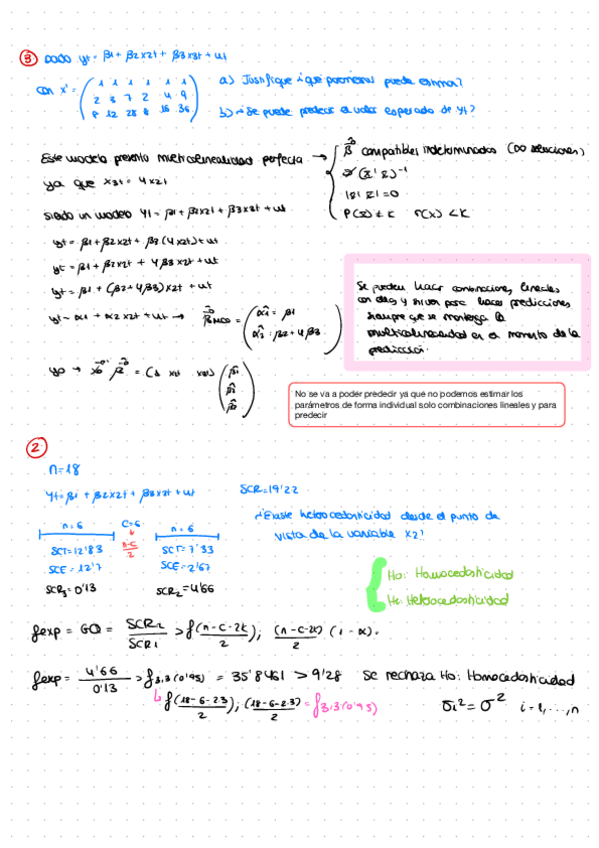 ③ DADO yt = β1 + β2x2t + β3x3t + ut
con x' = ( 1 1 1 1 1 1
2 3 7 2 4 9
8 12 28 8 16 36 )
a) Justifique ¿qué parámetros puede estimar?
b) ¿Se puede predecir el valor esperado de yt?
Este modelo presenta multicolinealidad perfecta →
ya que x3t = 4x2t
β̂ compatibles indeterminados (∞ soluciones)
(x'x)⁻¹
|x'x| = 0
ρ(x) ≠ K r(x) < K
siendo un modelo yt = β1 + β2x2t + β3x3t + ut
yt = β1 + β2x2t + β3(4x2t) + ut
yt = β1 + β2x2t + 4β3x2t + ut
yt = β1 + (β2 + 4β3)x2t + ut
yt = α1 + α2x2t + ut → β̂MCO = ( α̂1 = β1
α̂2 = β2 + 4β3 )
Se pueden hacer combinaciones lineales
con ellos y sirven para hacer predicciones
siempre que se mantenga la
multicolinealidad en el momento de la
predicción.
y0 → x0' β̂ = (1 x2t x3t) ( β̂1
β̂2
β̂3 )
No se va a poder prededir ya que no podemos estimar los
parámetros de forma individual solo combinaciones lineales y para
predecir
②
n=18
yt = β1 + β2x2t + β3x3t + ut
SCR = 19'22
¿Existe heterocedasticidad desde el punto de
vista de la variable x2?
n=6 C=6 n=6
n-c
2
SCT = 12'83 SCT = 7'33
SCE = 12'7 SCE = 2'67
SCR1 = 0'13 SCR2 = 4'66
Ho: Homocedasticidad
H1: Heterocedasticidad
fexp = GQ = SCR2 / SCR1 > f (n-c-2k) / 2 ; (n-c-2k) / 2 (1-α).
fexp = 4'66 / 0'13 > f3,3(0'95) = 35'8461 > 9'28 Se rechaza Ho: Homocedasticidad
↳ f (18-6-2·3) / 2 ; (18-6-2·3) / 2 = f3,3(0'95)
σi² = σ² i = 1, ..., n